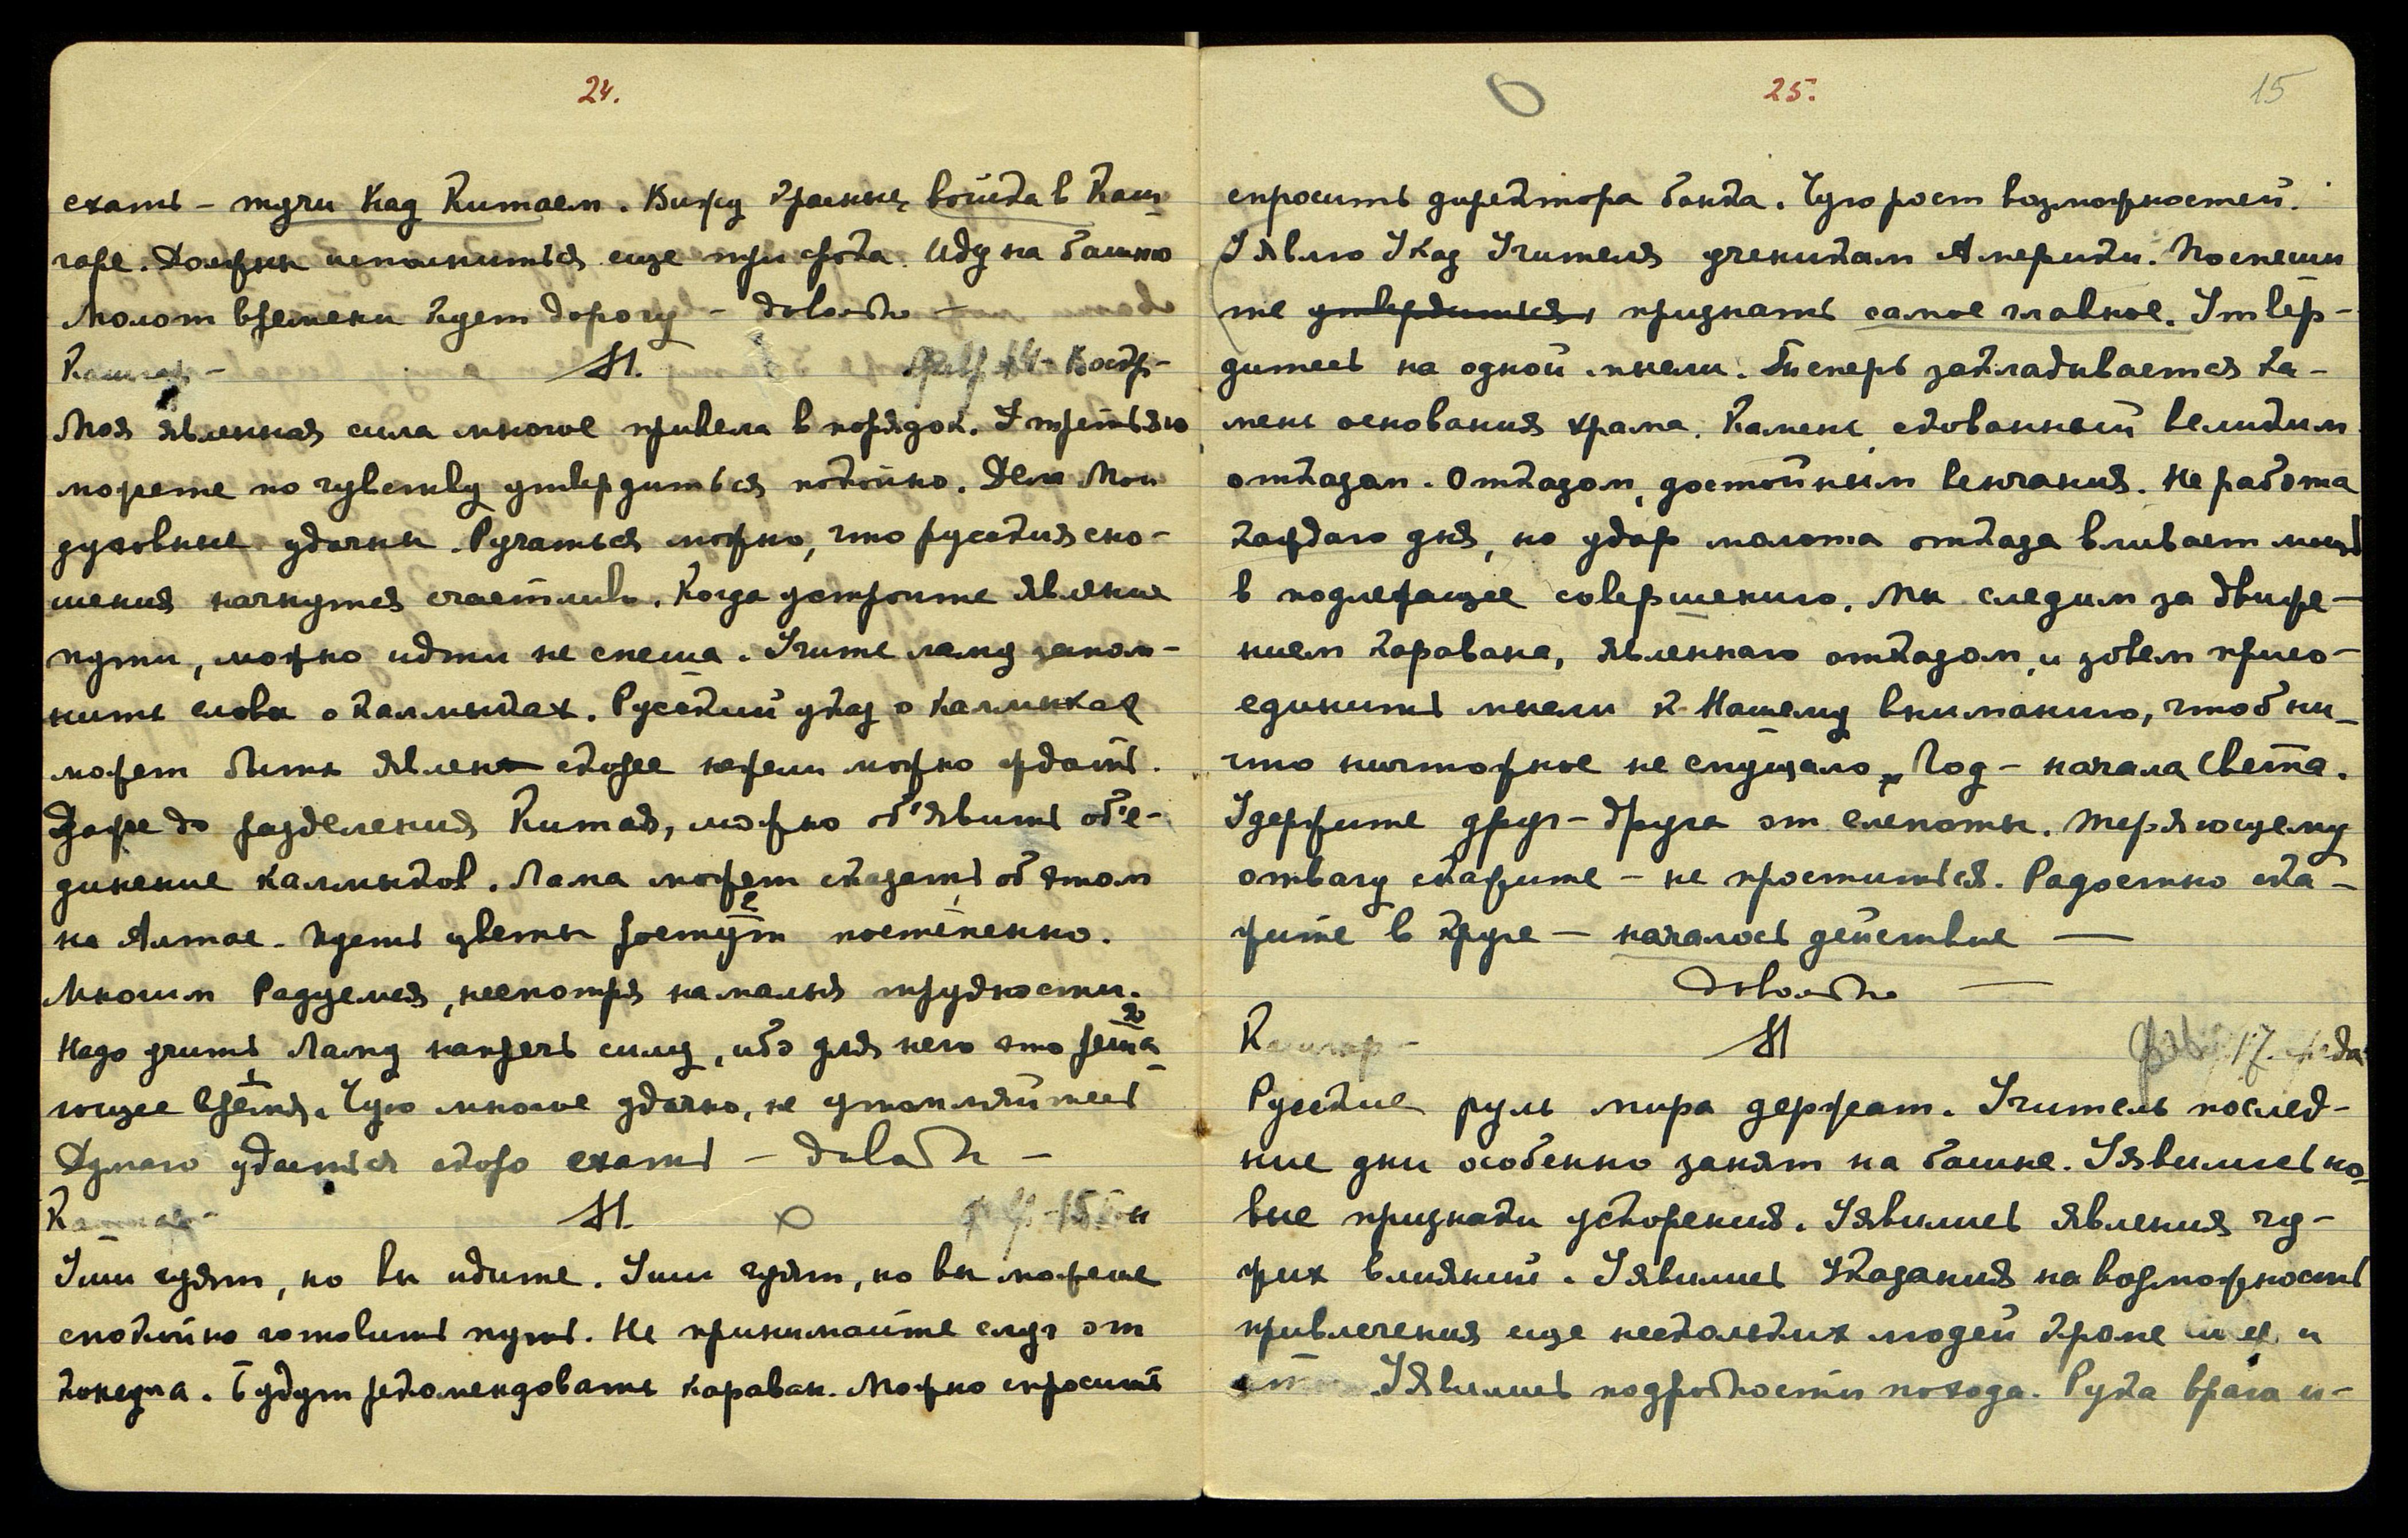 24.
ехать – тучи над Китаем. Вижу красные войска в Каш-
гаре. Должны исполниться еще три срока. Иду на башню
Молот времени кует дорогу – довольно –
Кашгар – М. февр 14 – Воскр –
Моя явленная сила многое привела в порядок. Утретьяю
можете по чувству утвердиться покойно. Дела Мои
духовные удачны. Ручаться можно, что русския сно-
шения начнутся счастливо. Когда устроите явление
пути, можно идти не спеша. Учите ламу запом-
нить слова о калмыках. Русский указ о калмыках
может быть явлен скорее нежели можно ждать.
Даже до разделения Китая, можно об'явить об'е-
динение калмыков. Лама может сказать об этом
на Алтае. Пусть цветы растут постепенно.
Многим Радуемся, несмотря на малыя трудности.
Надо учить Ламу напречь силу, ибо для него это реша-
ющее время. Чую многое удачно, не утомляйтесь
Думаю удасться скоро ехать – довольно –
Кашгар – М. февр. 15
Уши гудят, но вы идите. Уши гудят, но вы можете
спокойно готовить путь. Не принимайте слуг от
консула. Будут рекомендовать караван. Можно спросить
25.
15
спросить директора банка. Чую рост возможностей.
Являю Указ Учителя ученикам Америки. Поспеши
те утвердиться, признать самое главное. Утвер-
дитесь на одной мысли. Теперь закладывается ка-
мень основания храма. Камень, скованный великим
отказом. Отказом, достойным венчания. Не работа
каждаго дня, но удар молота отказа вливает мощь
в подлежащее совершению. Мы следим за движе-
нием каравана, явленнаго отказом, и зовем присо-
единить мысли к Нашему вниманию, чтоб ни-
что ничтожное не смущало. Год – начала Света.
Удержите друг-друга от слепоты. Теряющему
отвагу скажите – не проститься. Радостно ска-
жите в круге – началось действие –
довольно –
Кашгар – М февр. 17. среда
Русские руль мира держат. Учитель послед-
ние дни особенно занят на башне. Явились но-
вые признаки ускорения. Явились явления чу-
жих влияний. Явились Указания на возможность
привлечения еще нескольких людей кроме и
Явились подробности похода. Рука врага и-